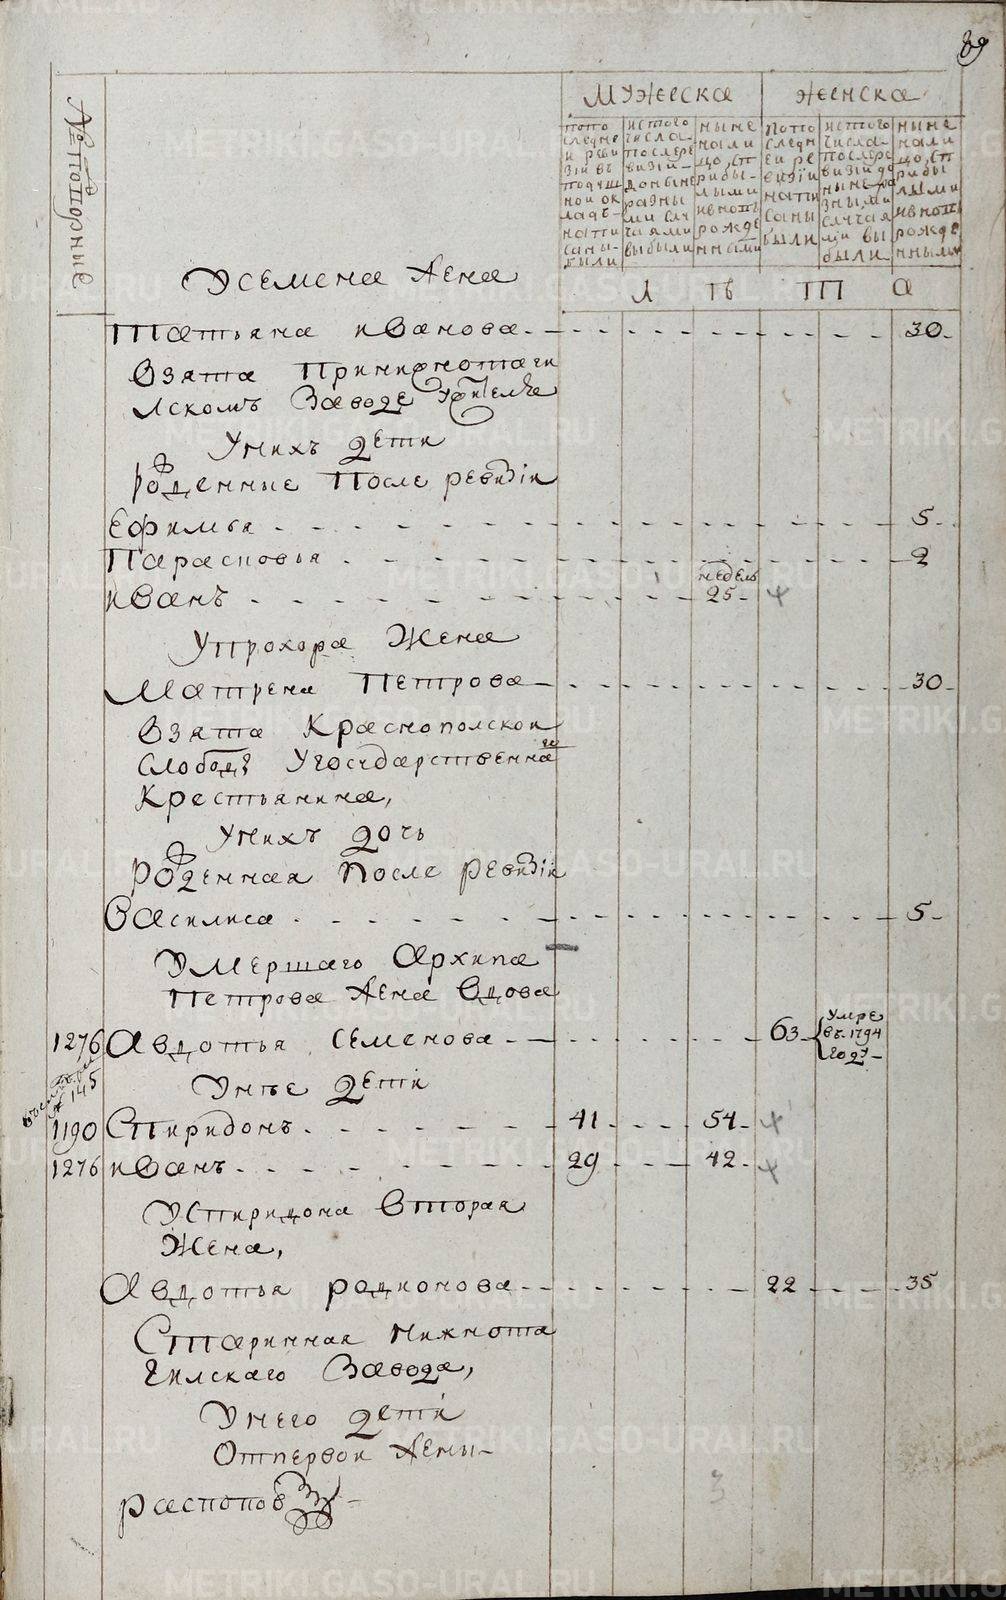 89
№ топорные
Мужеска
Женска
попо следне и реви зіи въ подуш ной ок ладъ напи саны были
истого числа после ре визіи доныне разны ми слу чаями выбыли
ныне нали цо сп рибы лыми ивновь рожде нными
попо следн ей ре визіи напи саны были
истого числа после ре визіи до ныне ра зными случая ми вы были
ныне нали цо сп рибы лыми ивновь рожде нными
лѣта
Усемена жена
Татьяна иванова 30
Взята Принижнотаги
лскомъ Заводе
Унихъ дети
Рожденные После ревизіи
Ефимья 5
Парасковья 2
недель
иванъ 1 25
Упрохора Жена
Матрена Петрова 30
Взята Краснополской
слободѣ Угосударственнаго
Крестьянина,
Унихъ дочь
Рожденная После ревизіи
Василиса 5
Умершаго Архипа
Петрова жена вдова
1276 Авдотья Семенова 63 Умре въ 1794 году
№ 145
Унѣе дети
1190 Спиридонъ 41 54
1276 иванъ 29 42
Успиридона Вторая
Жена,
Авдотья родионова 22 35
Старинная нижнота
гилскаго Завода,
Унего дети
Отпервой жены
распопов
3
METRIKI.GASO-URAL.RU